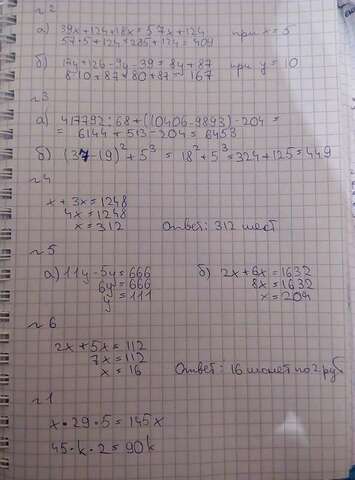 №2
а) 39x + 124 + 18x = 57x + 124 при x = 5
57·5 + 124 = 285 + 124 = 409
б) 17y + 126 - 9y - 39 = 8y + 87 при y = 10
8·10 + 87 = 80 + 87 = 167
№3
а) 417792 : 68 + (10406 - 9893) - 204 =
= 6144 + 513 - 204 = 6453
б) (37 - 19)² + 5³ = 18² + 5³ = 324 + 125 = 449
№4
x + 3x = 1248
4x = 1248
x = 312 Ответ: 312 шест
№5
а) 11y - 5y = 666 б) 2x + 6x = 1632
6y = 666 8x = 1632
y = 111 x = 204
№6
2x + 5x = 112
7x = 112
x = 16 Ответ: 16 монет по 2 руб
№1
x·29·5 = 145x
45·k·2 = 90k